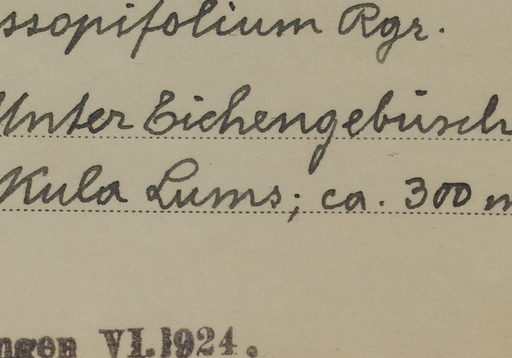 ssopifolium Rgr.
Unter Eichengebüsch
Kula Lums; ca. 300 m
ngen VI.1924.